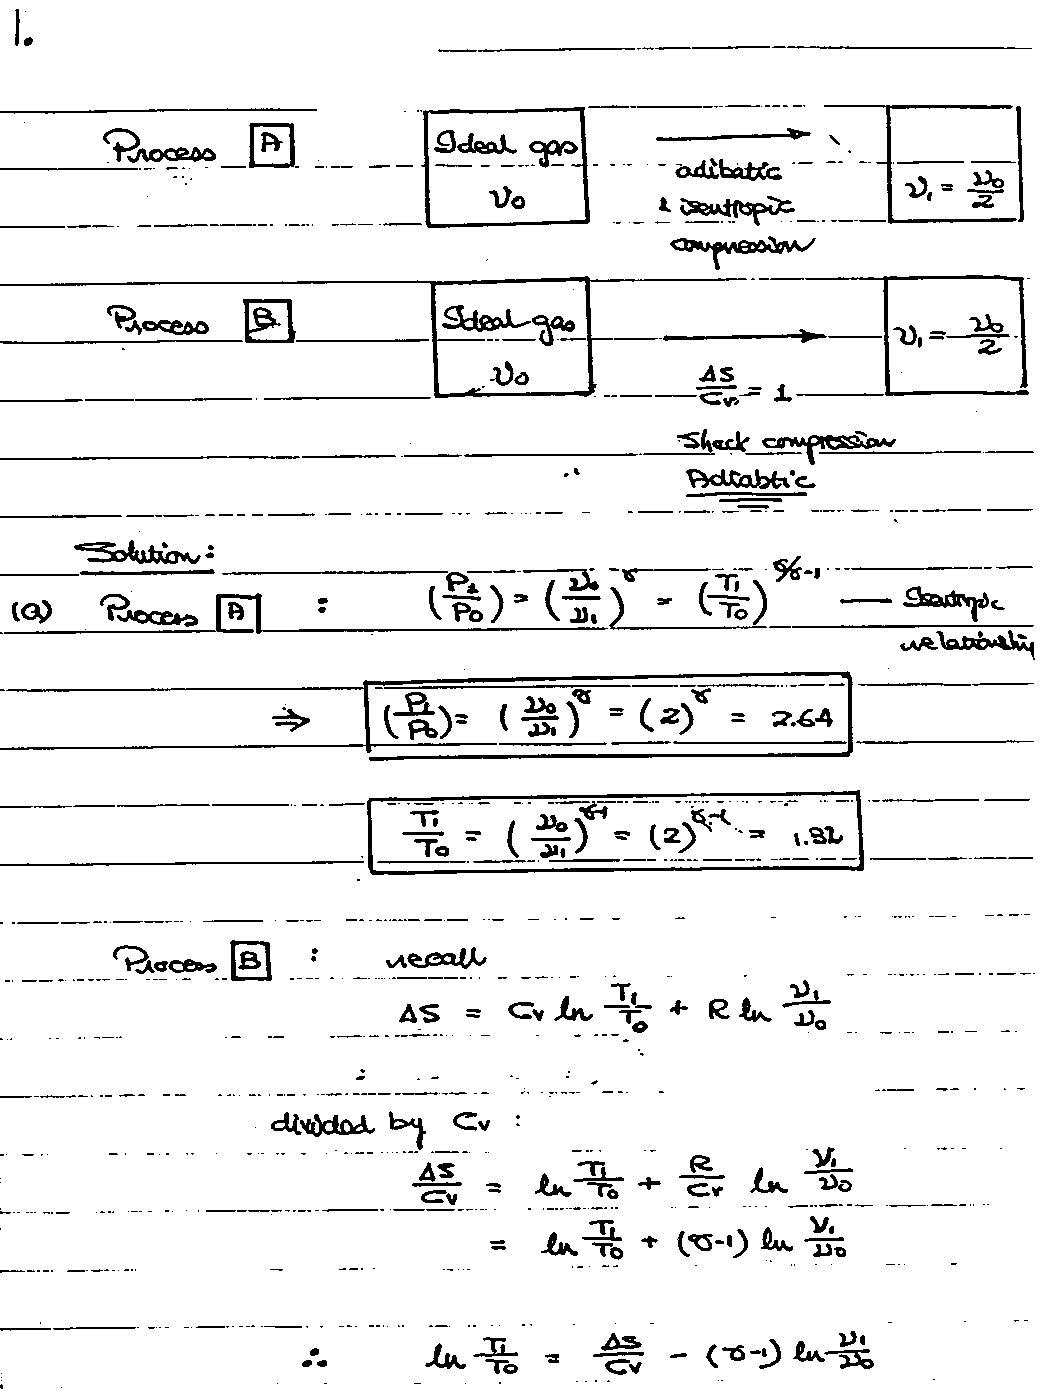 1.
Process A Ideal gas v₀ ⟶ adibatic & isentropic compression v₁ = v₀/2
Process B Ideal gas v₀ ⟶ ΔS/Cv = 1 v₁ = v₀/2
Shock compression
Adiabtic
Solution:
(a) Process A : (P₁/P₀) = (v₀/v₁)^γ = (T₁/T₀)^(γ/γ-1) — Isentropic relationship
⇒ (P₁/P₀) = (v₀/v₁)^γ = (2)^γ = 2.64
T₁/T₀ = (v₀/v₁)^(γ-1) = (2)^(γ-1) = 1.32
Process B : recall
ΔS = Cv ln T₁/T₀ + R ln v₁/v₀
divided by Cv :
ΔS/Cv = ln T₁/T₀ + R/Cv ln v₁/v₀
= ln T₁/T₀ + (γ-1) ln v₁/v₀
∴ ln T₁/T₀ = ΔS/Cv - (γ-1) ln v₁/v₀